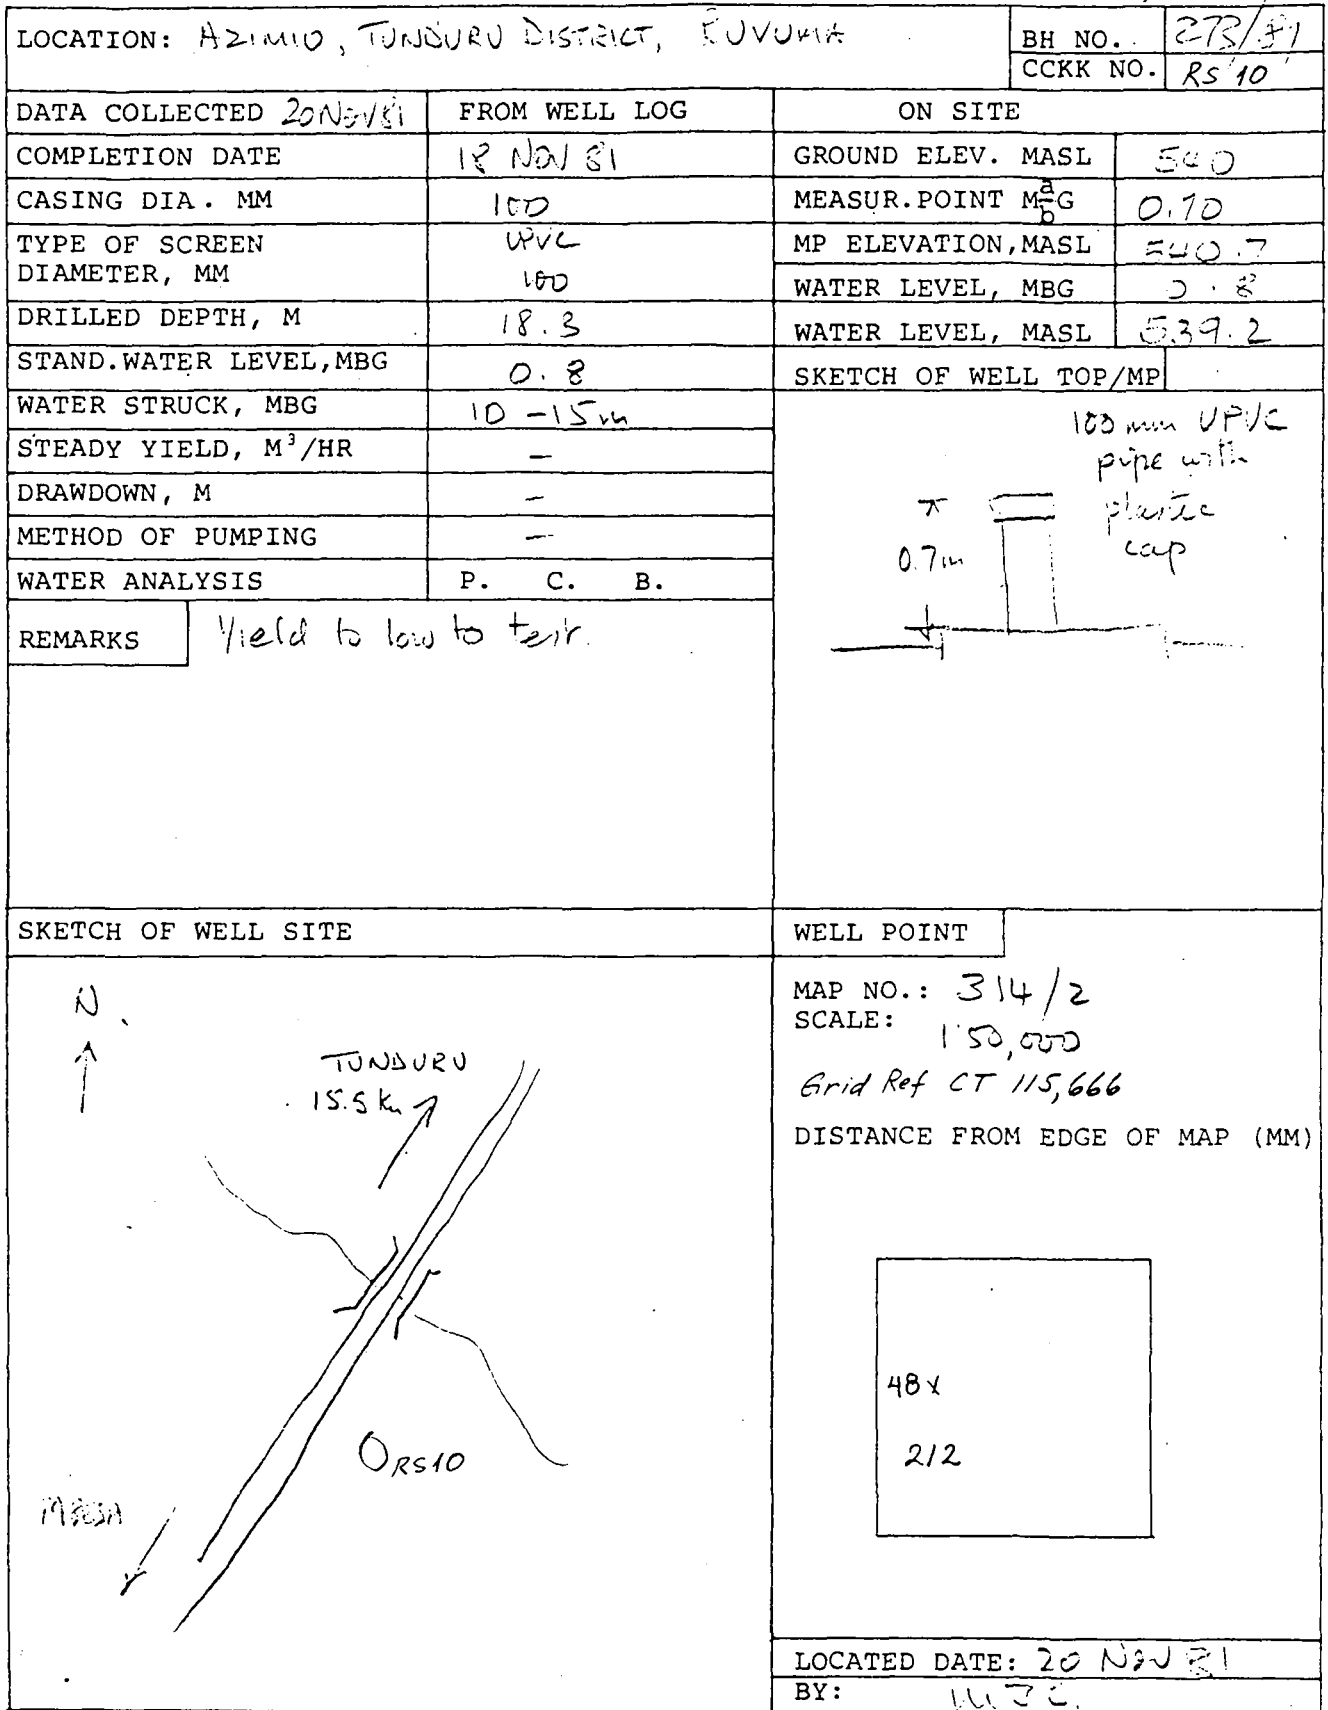 LOCATION: AZIMIO, TUNDURU DISTRICT, RUVUMA
BH NO. 273/81
CCKK NO. RS 10
DATA COLLECTED 20 Nov 81 FROM WELL LOG ON SITE
COMPLETION DATE 18 NOV 81
CASING DIA. MM 100
TYPE OF SCREEN UPVC
DIAMETER, MM 100
DRILLED DEPTH, M 18.3
STAND.WATER LEVEL,MBG 0.8
WATER STRUCK, MBG 10-15m
STEADY YIELD, M³/HR –
DRAWDOWN, M –
METHOD OF PUMPING –
WATER ANALYSIS P. C. B.
REMARKS Yield to low to test.
GROUND ELEV. MASL 540
MEASUR.POINT M a/b G 0.70
MP ELEVATION,MASL 540.7
WATER LEVEL, MBG 0.8
WATER LEVEL, MASL 539.2
SKETCH OF WELL TOP/MP
100 mm UPVC
pipe with
plastic
cap
0.7m
SKETCH OF WELL SITE
N
TUNDURU
15.5 Km
RS10
WELL POINT
MAP NO.: 314/2
SCALE: 1:50,000
Grid Ref CT 115,666
DISTANCE FROM EDGE OF MAP (MM)
48 x
212
LOCATED DATE: 20 Nov 81
BY: